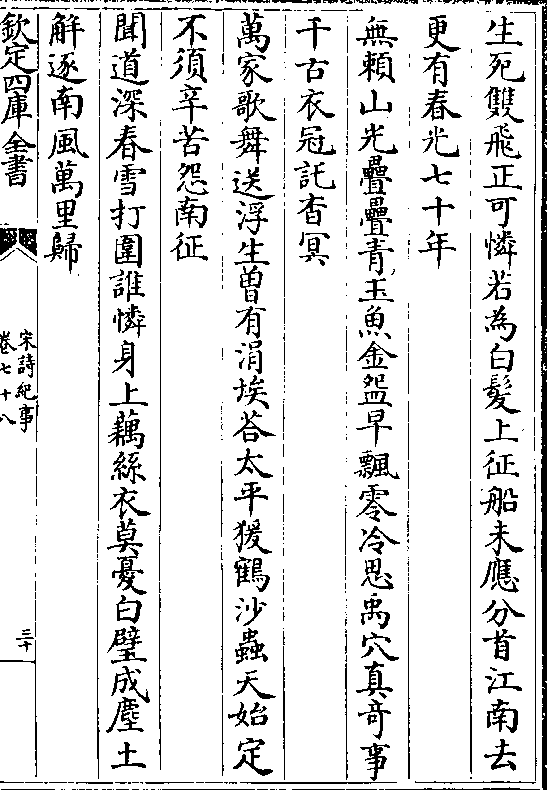 生死雙飛正可憐若為白髮上征船未應分首江南去
更有春光七十年
無賴山光疊疊青玉魚金盌早飄零冷思禹穴真竒事
千古衣冠託杳冥
萬家歌舞送浮生曽有涓埃荅太平猨鶴沙蟲天始定
不須辛苦怨南征
聞道深春雪打圍誰憐身上藕絲衣莫憂白璧成塵土
解逐南風萬里歸
欽定四庫全書
宋詩紀事
卷七十八
三十